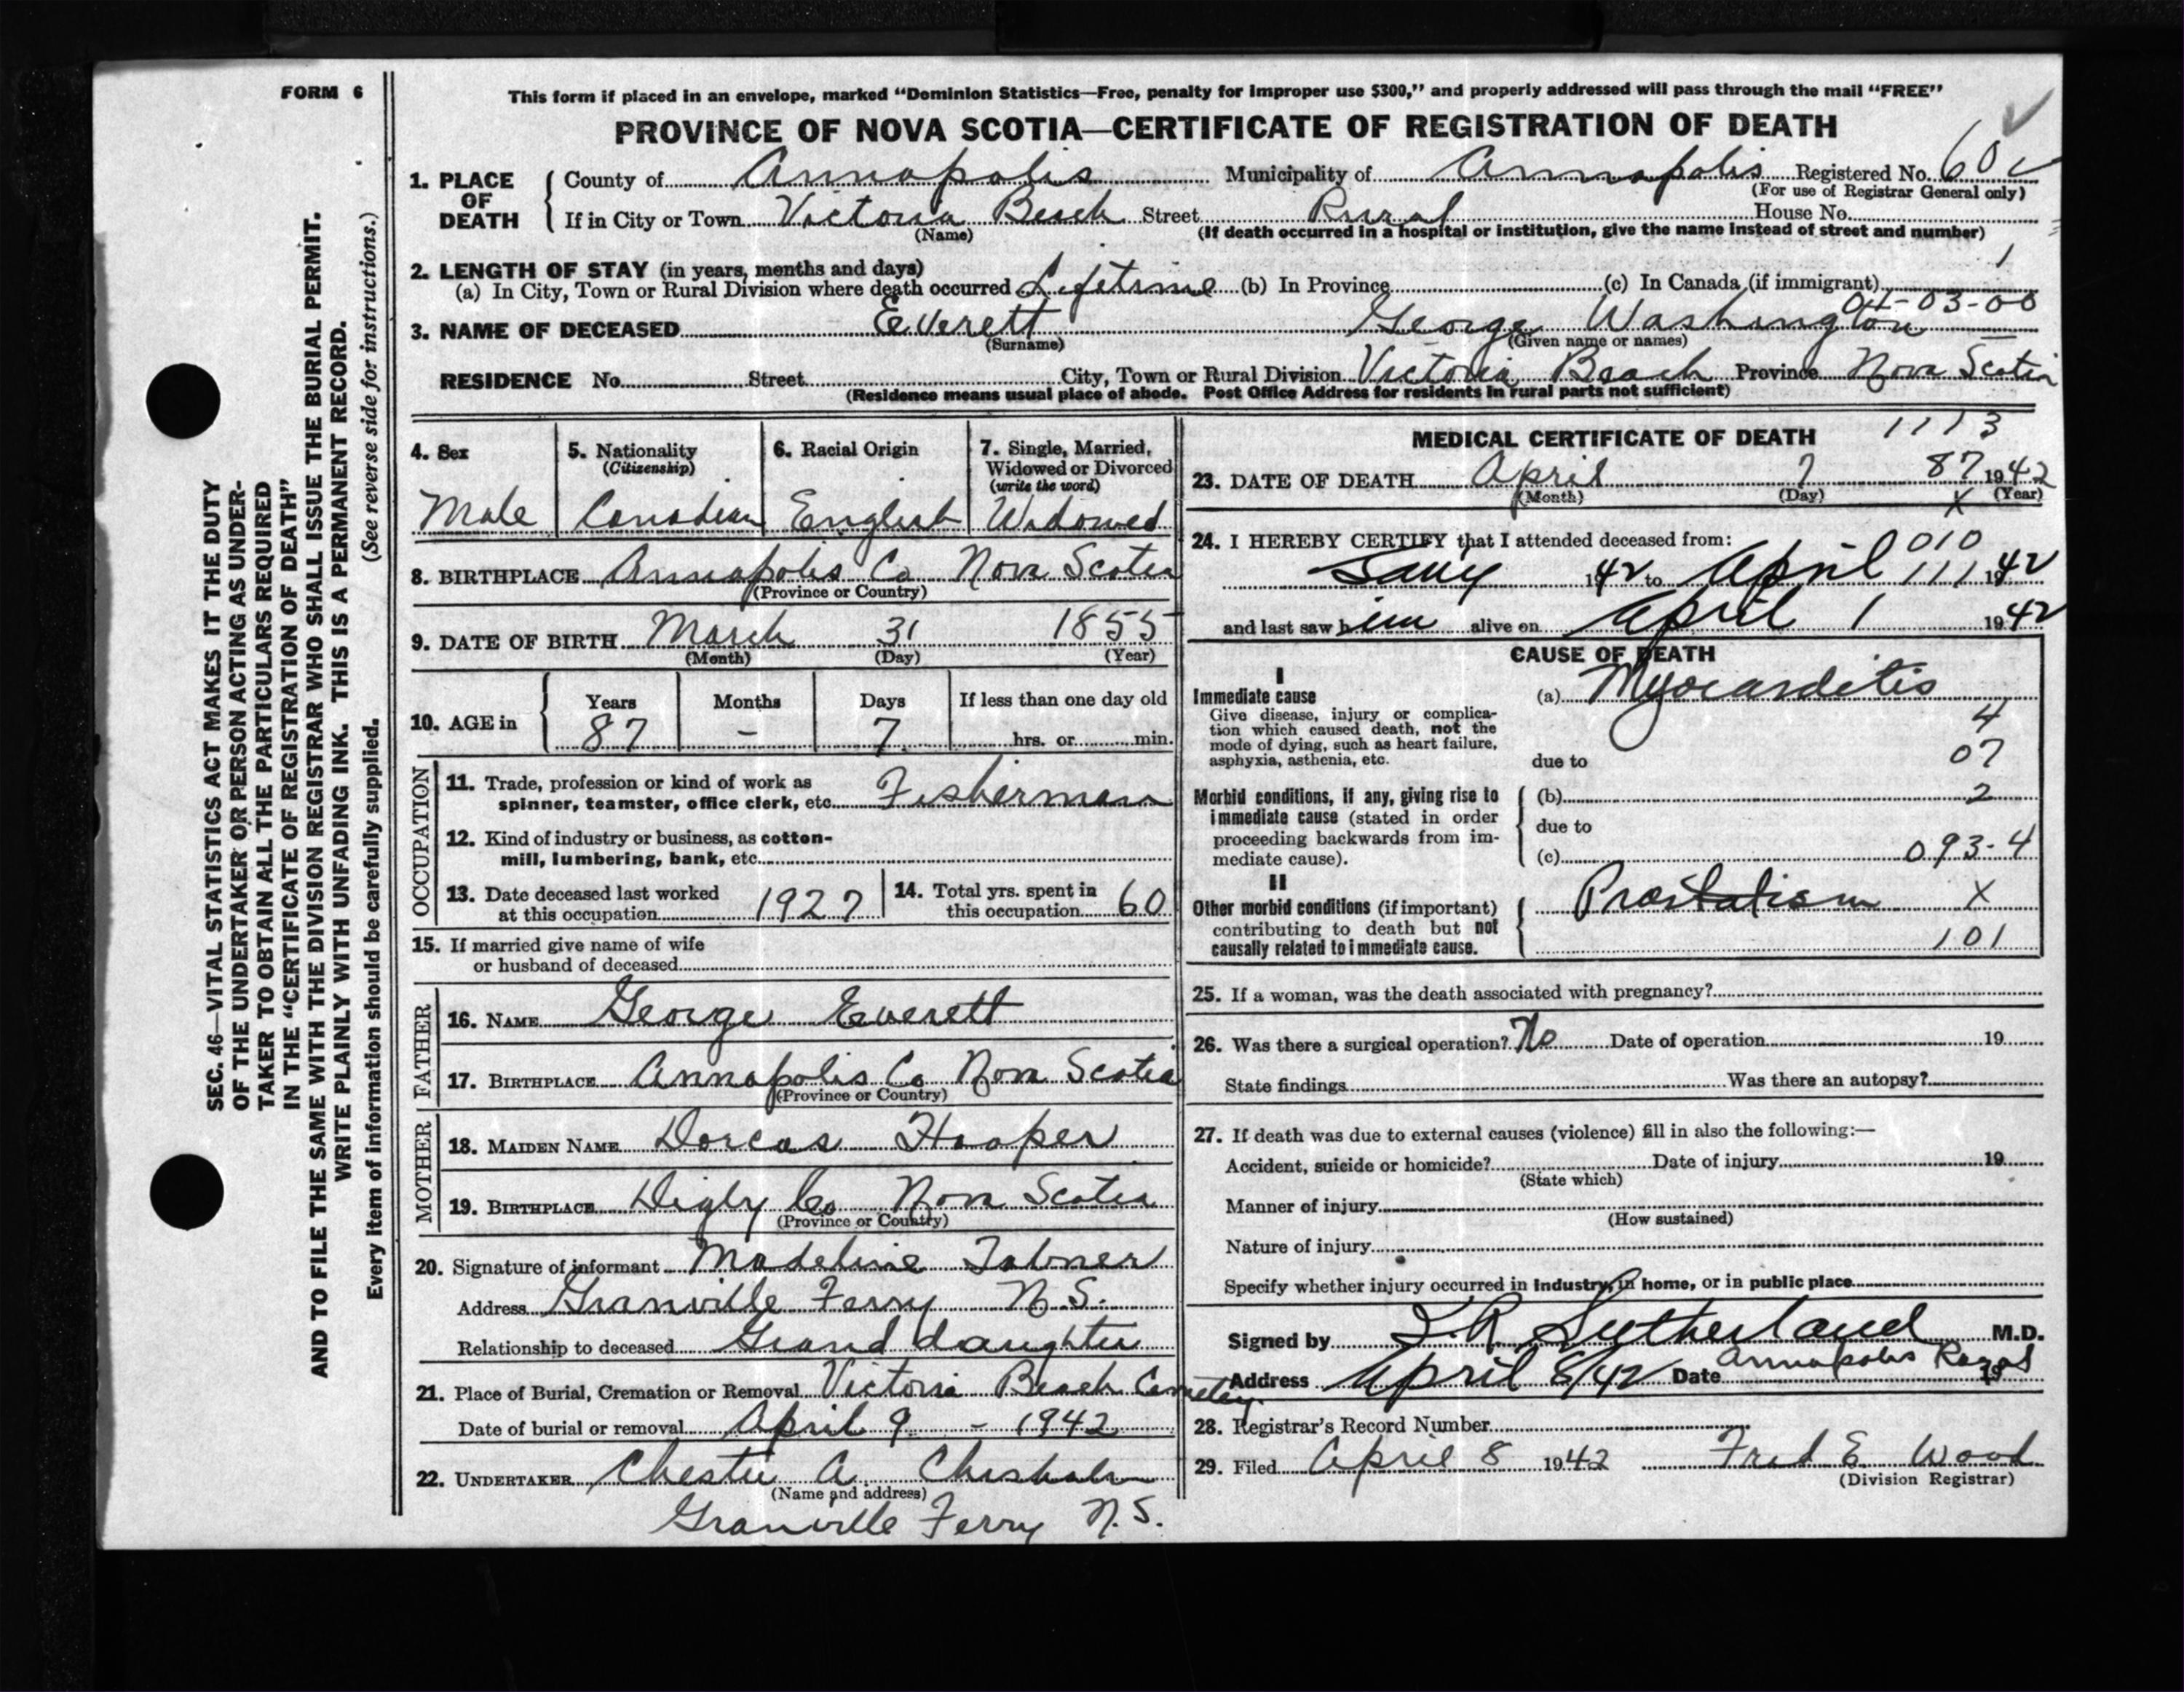 FORM 6
This form if placed in an envelope, marked “Dominion Statistics—Free, penalty for improper use $300,” and properly addressed will pass through the mail “FREE”
PROVINCE OF NOVA SCOTIA—CERTIFICATE OF REGISTRATION OF DEATH
1. PLACE OF DEATH County of Annapolis Municipality of Annapolis Registered No. 60
(For use of Registrar General only)
If in City or Town Victoria Beach Street Rural House No.
(Name) (If death occurred in a hospital or institution, give the name instead of street and number)
2. LENGTH OF STAY (in years, months and days) 1
(a) In City, Town or Rural Division where death occurred Lifetime (b) In Province (c) In Canada (if immigrant)
04-03-00
3. NAME OF DECEASED Everett George Washington
(Surname) (Given name or names)
RESIDENCE No. Street City, Town or Rural Division Victoria Beach Province Nova Scotia
(Residence means usual place of abode. Post Office Address for residents in rural parts not sufficient)
4. Sex 5. Nationality (Citizenship) 6. Racial Origin 7. Single, Married, Widowed or Divorced (write the word)
Male Canadian English Widowed
8. BIRTHPLACE Annapolis Co Nova Scotia
(Province or Country)
9. DATE OF BIRTH March 31 1855
(Month) (Day) (Year)
Years Months Days If less than one day old
10. AGE in 87 - 7 hrs. or min.
OCCUPATION
11. Trade, profession or kind of work as
spinner, teamster, office clerk, etc. Fisherman
12. Kind of industry or business, as cotton-
mill, lumbering, bank, etc.
13. Date deceased last worked at this occupation 1927 14. Total yrs. spent in this occupation 60
15. If married give name of wife
or husband of deceased
FATHER
16. NAME George Everett
17. BIRTHPLACE Annapolis Co Nova Scotia
(Province or Country)
MOTHER
18. MAIDEN NAME Dorcas Hooper
19. BIRTHPLACE Digby Co Nova Scotia
(Province or Country)
20. Signature of informant Madeline Tabner
Address Granville Ferry N.S.
Relationship to deceased Grand daughter
21. Place of Burial, Cremation or Removal Victoria Beach Cemetery.
Date of burial or removal April 9 - 1942
22. UNDERTAKER Chester A. Chisholm
(Name and address)
Granville Ferry N.S.
MEDICAL CERTIFICATE OF DEATH 1113
23. DATE OF DEATH April 7 87 1942
(Month) (Day) X (Year)
24. I HEREBY CERTIFY that I attended deceased from: 010
1942 to April 111 1942
and last saw him alive on April 1 1942
CAUSE OF DEATH
I
Immediate cause (a) Myocarditis
Give disease, injury or complica- 4
tion which caused death, not the
mode of dying, such as heart failure,
asphyxia, asthenia, etc. due to 07
Morbid conditions, if any, giving rise to (b) 2
immediate cause (stated in order
proceeding backwards from im- due to
mediate cause). (c) 093-4
II
Other morbid conditions (if important) Prostatism X
contributing to death but not
causally related to immediate cause. 101
25. If a woman, was the death associated with pregnancy?
26. Was there a surgical operation? No Date of operation 19
State findings Was there an autopsy?
27. If death was due to external causes (violence) fill in also the following:—
Accident, suicide or homicide? Date of injury 19
(State which)
Manner of injury
(How sustained)
Nature of injury
Specify whether injury occurred in industry, in home, or in public place
Signed by Sutherland M.D.
Annapolis Royal
Address April 8/42 Date 19
28. Registrar's Record Number
29. Filed April 8 1942 Fred E Wood
(Division Registrar)
SEC. 46—VITAL STATISTICS ACT MAKES IT THE DUTY
OF THE UNDERTAKER OR PERSON ACTING AS UNDER-
TAKER TO OBTAIN ALL THE PARTICULARS REQUIRED
IN THE “CERTIFICATE OF REGISTRATION OF DEATH”
AND TO FILE THE SAME WITH THE DIVISION REGISTRAR WHO SHALL ISSUE THE BURIAL PERMIT.
WRITE PLAINLY WITH UNFADING INK. THIS IS A PERMANENT RECORD.
Every item of information should be carefully supplied. (See reverse side for instructions.)